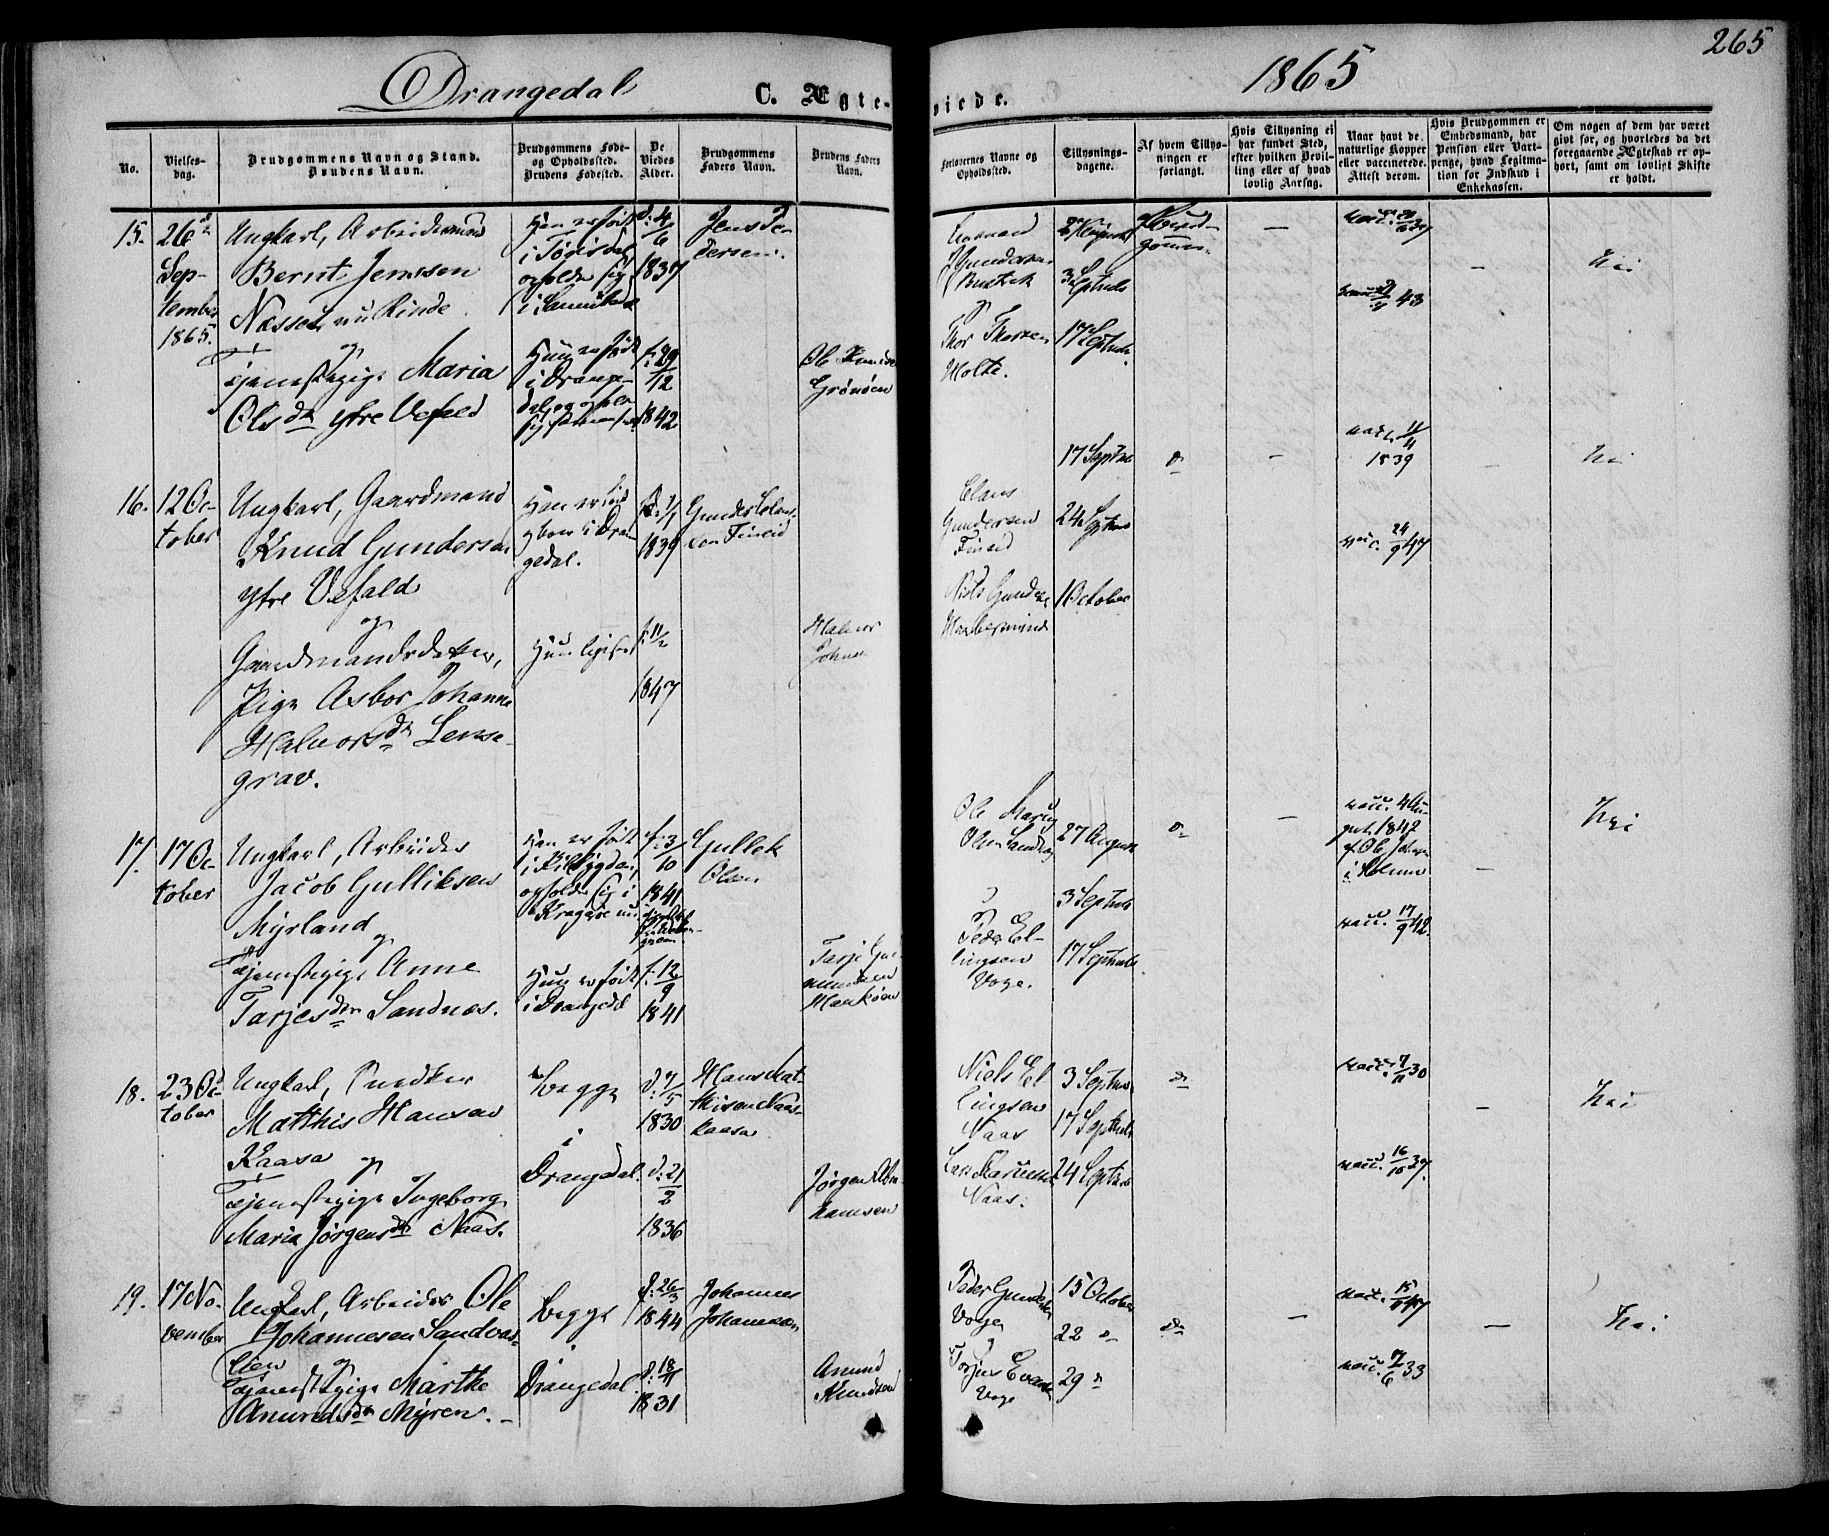 Drangedal
C. Ægte-
viede.
1865
265
No.
Vielses-
dag.
Brudgommens Navn og Stand.
Brudens Navn.
Brudgommens Føde-
og Opholdssted.
Brudens Fødested.
De
Viedes
Alder.
Brudgommens
Faders Navn.
Brudens Faders
Navn.
Forlovernes Navne og
Opholdssted.
Tillysnings-
dagene.
Af hvem Tillys-
ningen er
forlangt.
Hvis Tillysning ei
har fundet Sted,
efter hvilken Bevil-
ling eller af hvad
lovlig Aarsag.
Naar havt de
naturlige Kopper
eller vaccinerede.
Attest derom.
Hvis Brudgommen er
Embedsmand, har
Pension eller Vart-
penge, hvad Legitima-
tion for Indskud i
Enkekassen.
Om nogen af dem har været
givt før, og hvorledes da det
foregaaende Ægteskab er op-
hørt, samt om lovligt Skifte
er holdt.
15.
26de
Sep-
tember
1865.
Ungkarl, Arbeidsmand
Bernt Jenssen
Næsset, nu Rinde
og
Tjenestepige Maria
Olsdtr ytre Vefald
Han er født
i Tørisdal
opholder sig
i Sannikedal
Hun er født
i Drange-
dal og
d: 4/6
1837
f: 29/12
1842
Jens Pe-
dersen.
Ole
Grønåen
Gundersen
og
Thor
Holte.
27 August
3 Septbr
17 Septbr
Brud-
gommen.
—
vacc. 43
—
Nei
16.
12 Oc-
tober
Ungkarl, Gaardmand
Knud Gundersen
ytre Vefald
og
Gaardmandsdatter,
Pige Asbor Johanne
Halvorsdtr Lense-
grav.
Han er født
i Dran-
gedal.
Hun ligesaa
1/1
1839
f: 11/2
1847
Gunder Claus-
sen
Halvor
Johns
Claus
Gundersen
Niels Gunders
17 Septbr
24 Septbr
1 October
do
—
vacc. 11/4
1839
vacc. 24/9 47
—
Nei
17.
17 Oc-
tober
Ungkarl, Arbeider
Jacob Gulliksen
Myrland
og
Tjenestepige Anne
Tarjesdtr Sandnæs.
Han er født
opholder sig i
Kragerø nu
Hun er født
i Drangedal
f: 3/10
1841
f: 12/9
1841
Gullek
Olsen
Tarje
Ole
og
Peder El-
lingsen
Voge.
27 August
3 Septbr
17 Septbr
do
—
vacc. 4 Au-
gust 1842
af Ole
i Holum
vacc. 17/9 42.
—
Nei
18.
23 Oc-
tober
Ungkarl, Snedker
Matthis Hansen
Kaasa
og
Tjenestepige Ingeborg
Maria Jørgensdtr Naas.
Begge
i
Drangedal.
d: 7/5
1830
d: 21/2
1836
Hans Mat-
thisen Naas-
kaasa
Jørgen Abra-
hamsen
Niels El-
lingsen
Naas
Naas.
3 Septbr
17 Septbr
24 Septbr
do
vacc. 7/11 30
vacc. 16/10 37.
—
Nei
19.
17 No-
vember
Ungkarl, Arbeider Ole
Johannesen Sandvas-
lien
og
Tjenestepige Marthe
Amundsdtr Myren.
Begge
i
Drangedal
f: 26/3
1844
f: 18/11
1831
Johannes
Johannesen
Amund
Knudsen
Peder Gunders
Voge
Voge
15 October
22 do
29 do
do
—
vacc. 15/9 47
vacc. 7/6 33
—
Nei